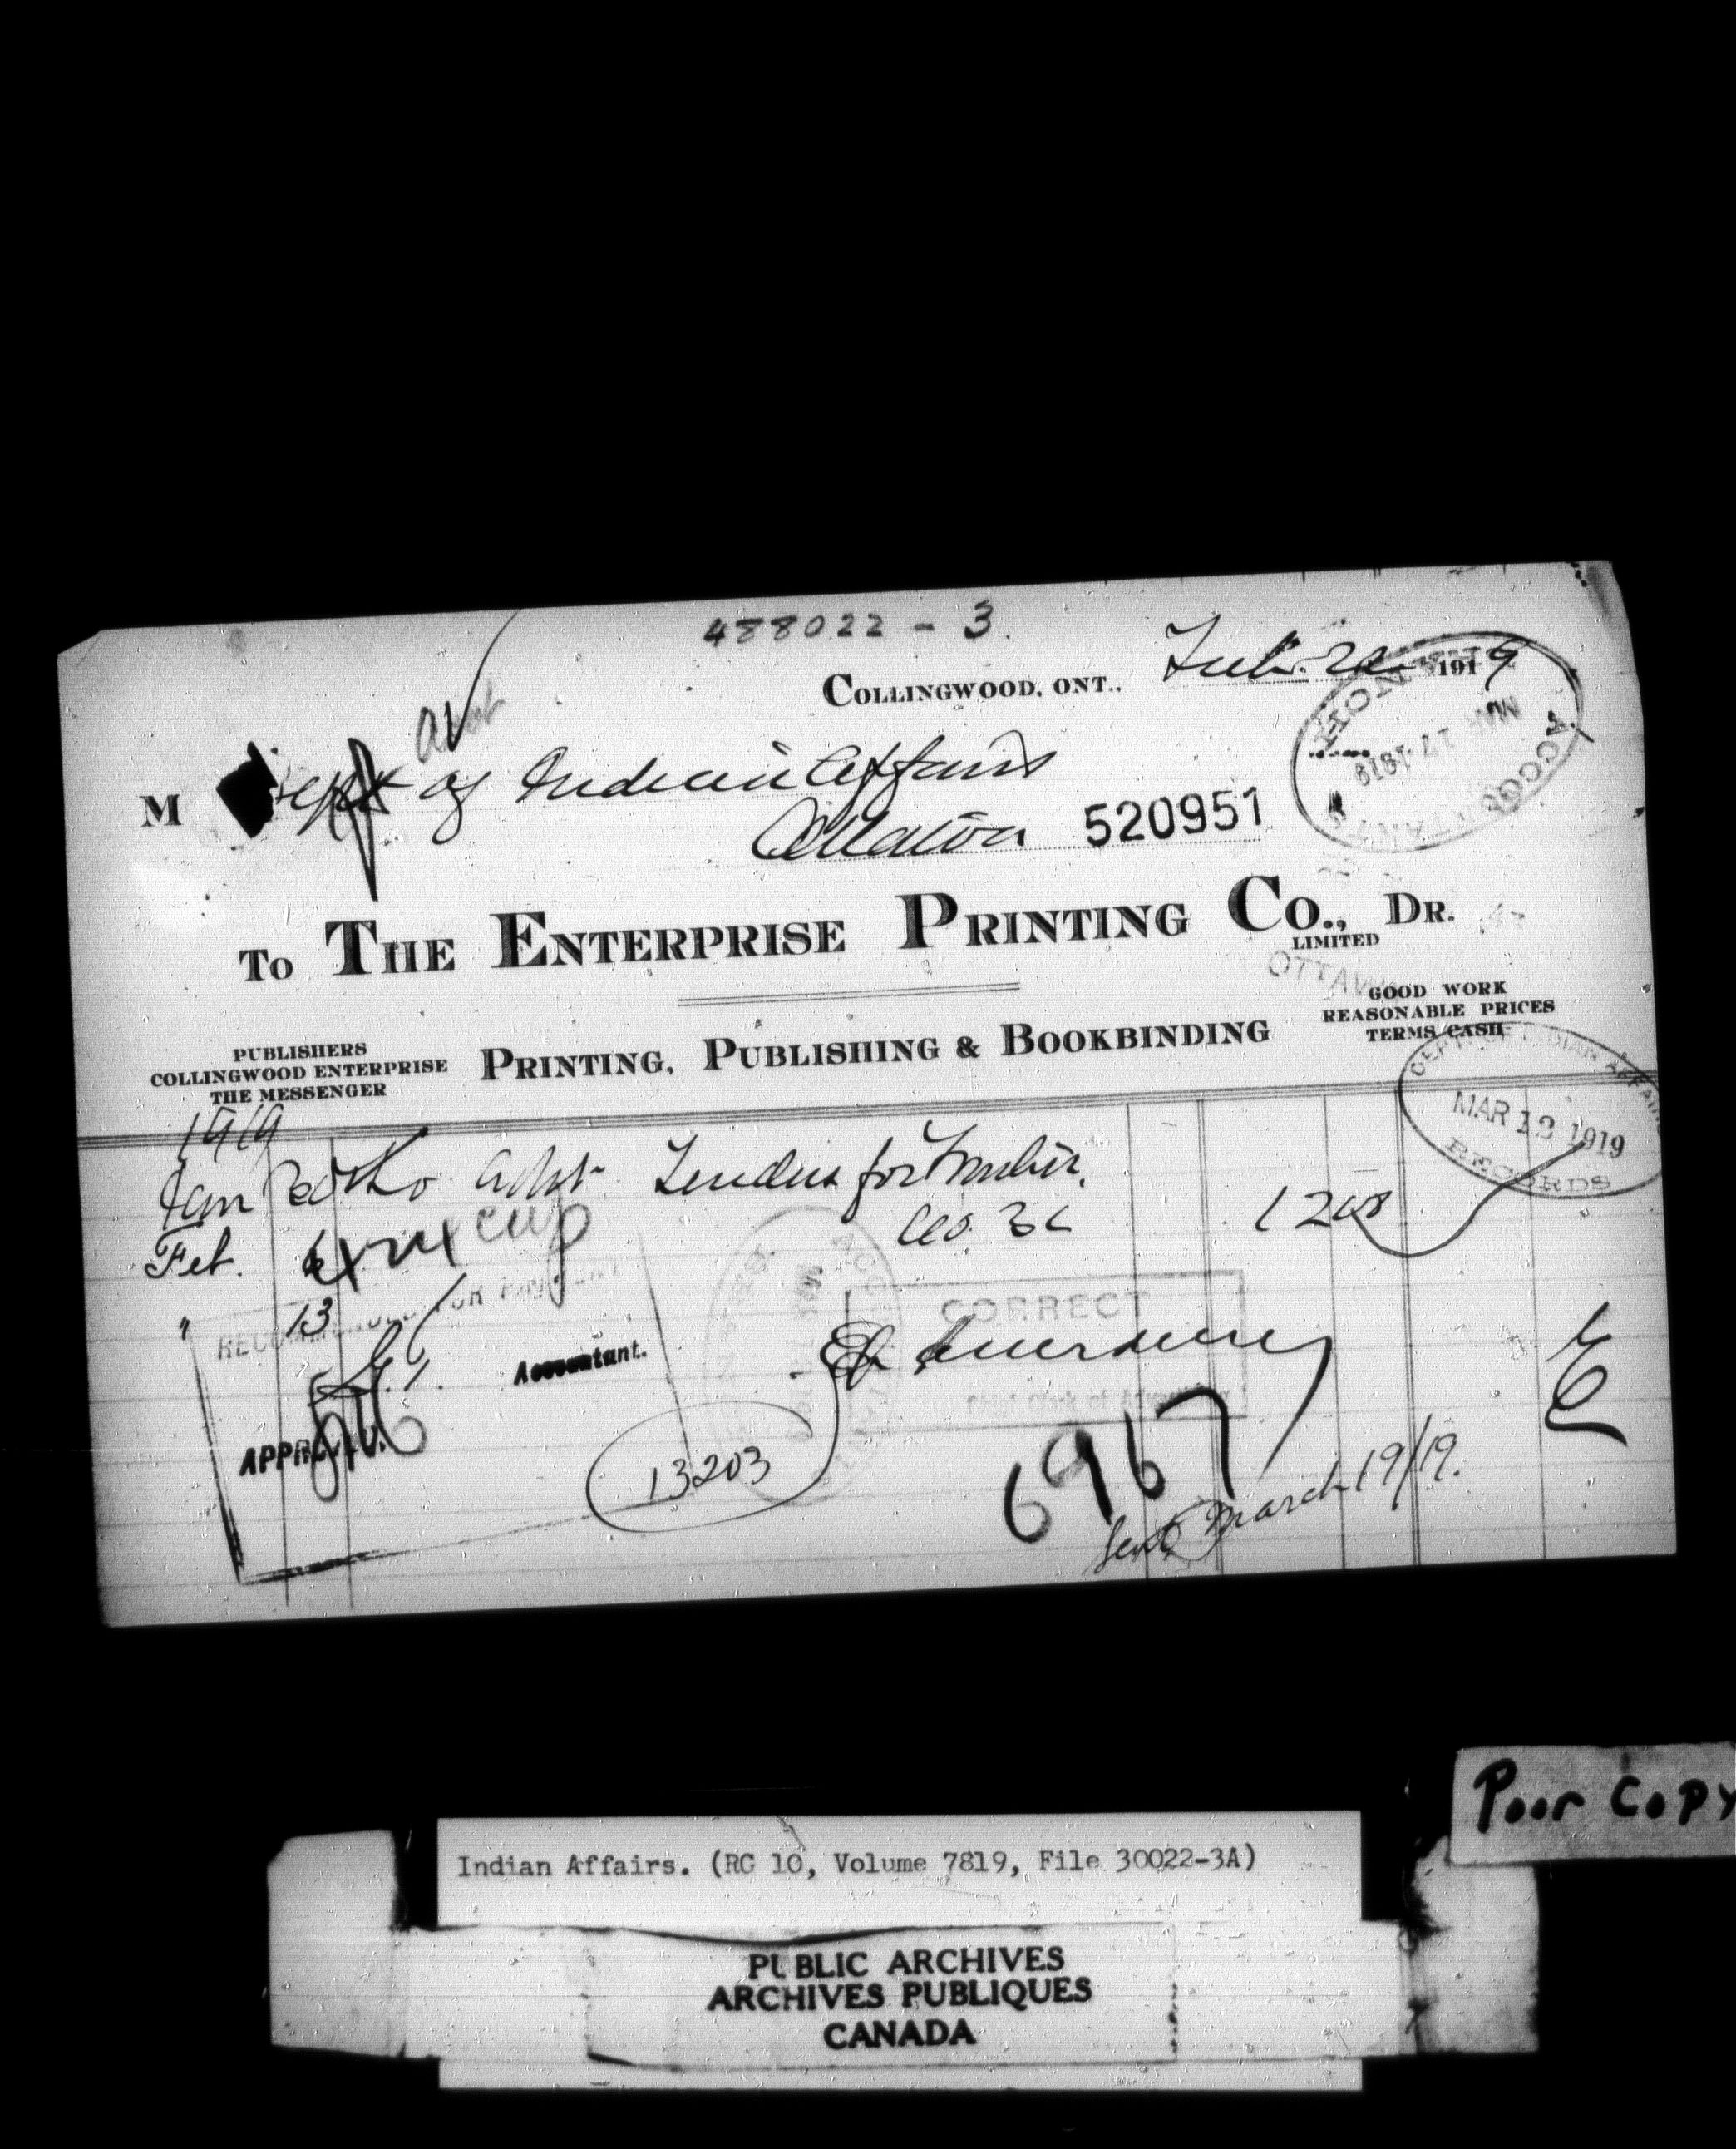 488022 - 3.
COLLINGWOOD, ONT., Feb. 22 1919
M Dept of Indian Affairs
Ottawa 520951
ACCOUNTANT'S BRANCH
MAR 17 1919
TO THE ENTERPRISE PRINTING CO., LIMITED DR.
OTTAWA
GOOD WORK
REASONABLE PRICES
TERMS CASH
PUBLISHERS
COLLINGWOOD ENTERPRISE
THE MESSENGER
PRINTING, PUBLISHING & BOOKBINDING
DEPT. OF INDIAN AFFAIRS
MAR 12 1919
RECORDS
1919
Jan To advt Tenders for Timber.
Feb. 6
" 13
RECOMMENDED FOR PAYMENT
Accountant.
APPROVED.
CORRECT
Chief Clerk of Advertising
13203
6967
Sent March 19/19.
Poor Copy
Indian Affairs. (RG 10, Volume 7819, File 30022-3A)
PUBLIC ARCHIVES
ARCHIVES PUBLIQUES
CANADA